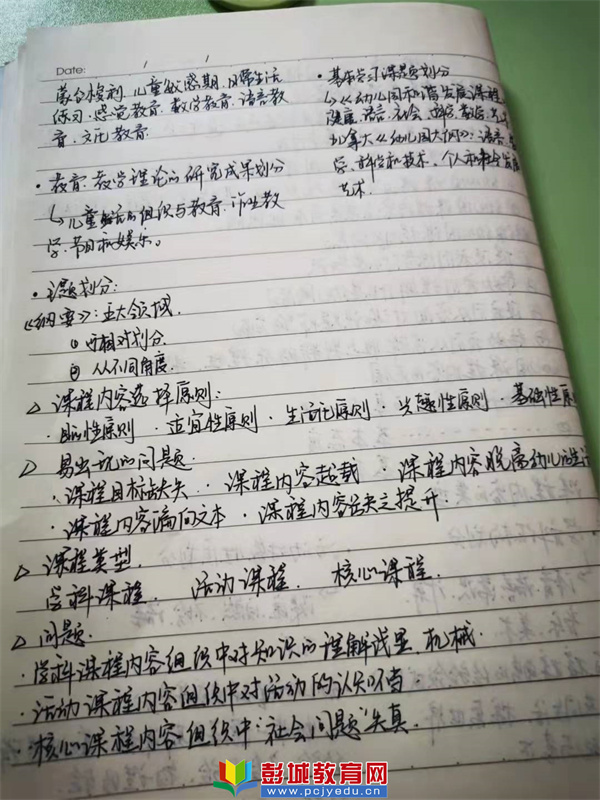 Date: / /
蒙台梭利、儿童敏感期、日常生活
练习、感觉教育、数学教育、语言教
育、文化教育.
· 教育、教学理论的研究成果划分
↳儿童生活的组织与教育、作业教
学、节目和娱乐。
· 基本学习课题划分
↳《幼儿园和谐发展课程
健康、语言、社会、科学、数学、艺
加拿大《幼儿园大纲》:语言、
学、科学和技术、个人和社会发展
艺术.
· 主题划分:
《纲要》:五大领域.
① 可相对划分.
② 从不同角度.
△ 课程内容选择原则:
· 目的性原则 · 适宜性原则 · 生活化原则 · 兴趣性原则 · 基础性原
△ 易出现的问题.
· 课程目标缺失 · 课程内容超载 · 课程内容脱离幼儿的生活
· 课程内容偏向文本 · 课程内容缺乏提升.
△ 课程类型.
学科课程. 活动课程. 核心课程.
△ 问题.
· 学科课程内容组织中对知识的理解浅显、机械.
· 活动课程内容组织中对活动的认知不当.
· 核心课程内容组织中“社会问题”失真.
彭城教育网
www.pcjyedu.cn